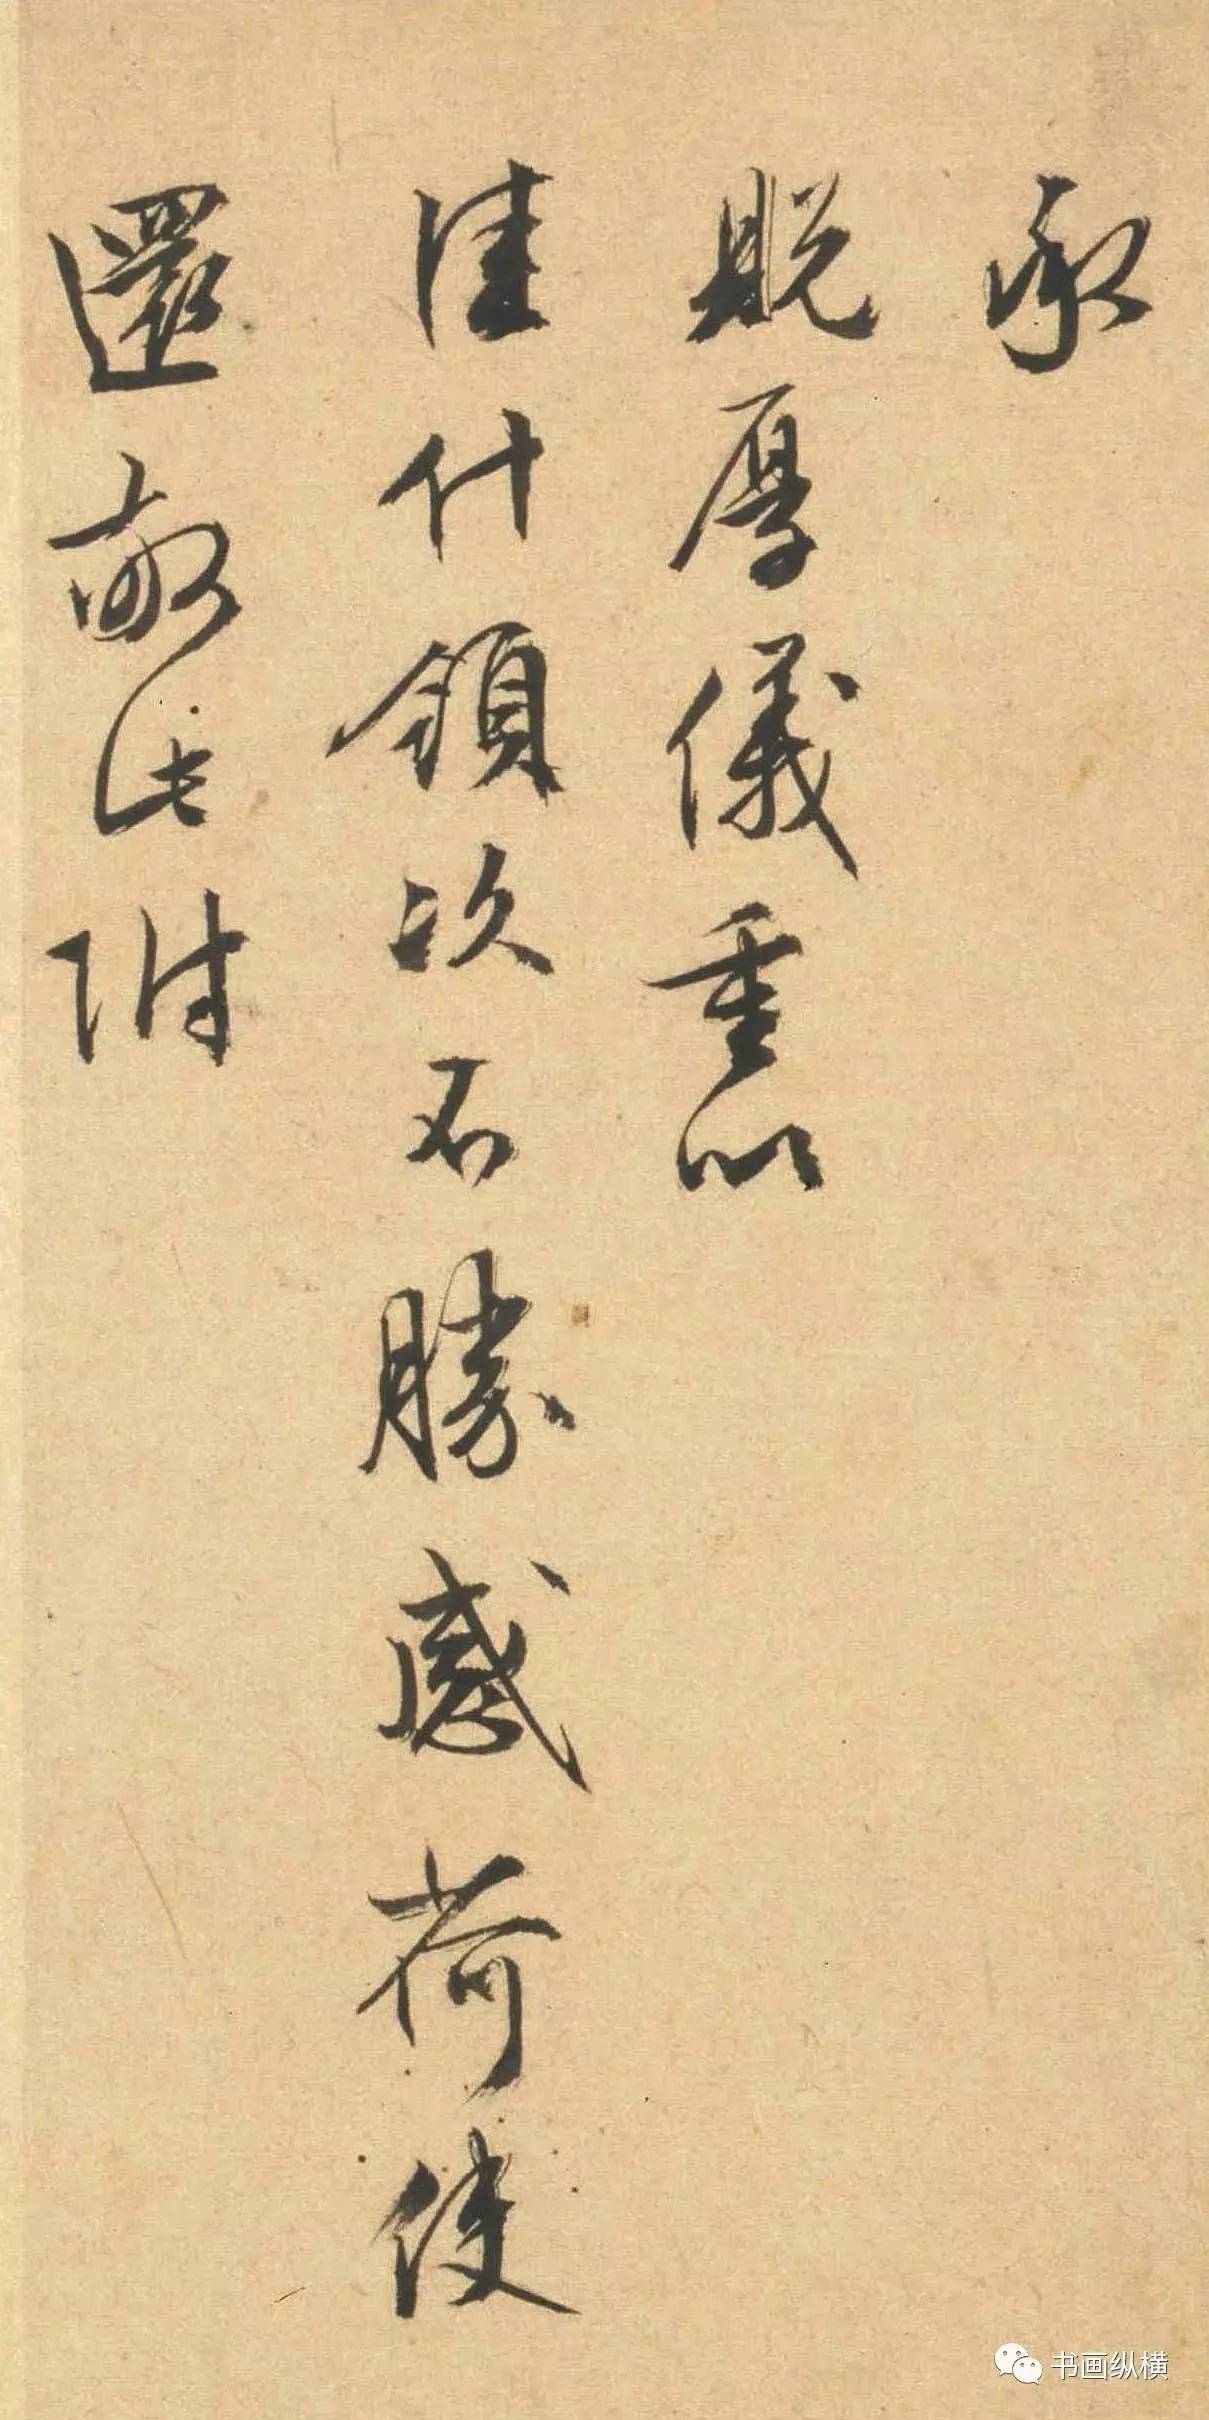 承
貺厚儀重以
佳什領次不勝感荷使
還敬此附
书画纵横